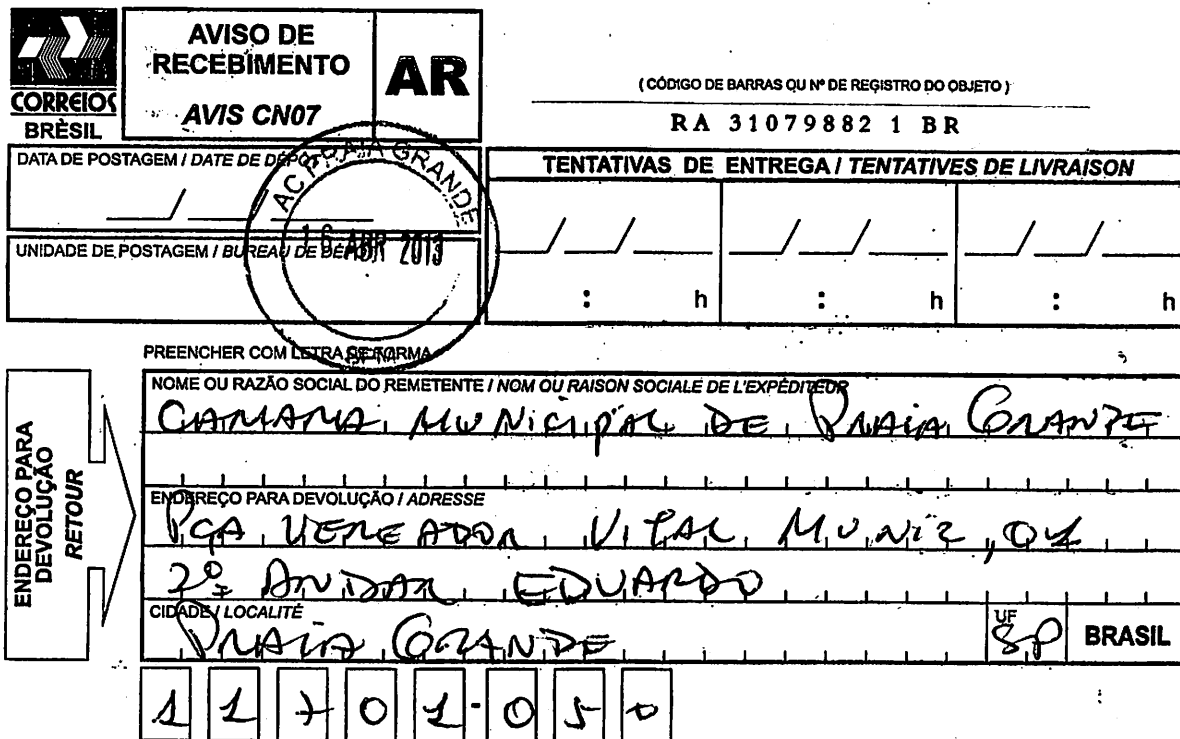 CORREIOS
BRÈSIL
AVISO DE
RECEBIMENTO
AVIS CN07
AR
( CÓDIGO DE BARRAS OU Nº DE REGISTRO DO OBJETO )
RA 31079882 1 BR
DATA DE POSTAGEM / DATE DE DÉPÔT
UNIDADE DE POSTAGEM / BUREAU DE DÉPÔT
AC PRAIA GRANDE
16 ABR 2013
TENTATIVAS DE ENTREGA / TENTATIVES DE LIVRAISON
: h : h : h
PREENCHER COM LETRA DE FORMA
ENDEREÇO PARA
DEVOLUÇÃO
RETOUR
NOME OU RAZÃO SOCIAL DO REMETENTE / NOM OU RAISON SOCIALE DE L'EXPÉDITEUR
CAMARA MUNICIPAL DE PRAIA GRANDE
ENDEREÇO PARA DEVOLUÇÃO / ADRESSE
PÇA VEREADOR VITAL MUNIZ, 01
2º ANDAR EDUARDO
CIDADE / LOCALITÉ
PRAIA GRANDE
UF
SP
BRASIL
11701-050